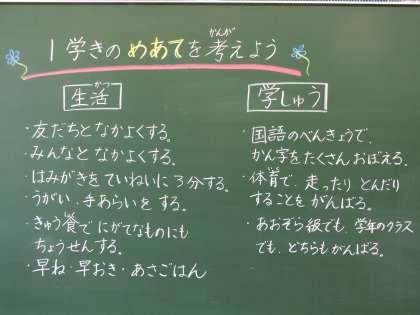 1学きの めあてを考えよう
かんが
生活
かつ
・友だちとなかよくする。
・みんなとなかよくする。
・はみがきをていねいに3分する。
・うがい、手あらいをする。
・きゅう食でにがてなものにも
ちょうせんする。
・早ね・早おき・あさごはん
学しゅう
・国語のべんきょうで、
かん字をたくさんおぼえる。
・体育で、走ったりとんだり
することをがんばる。
・あおぞら級でも、学年のクラス
でも、どちらもがんばる。